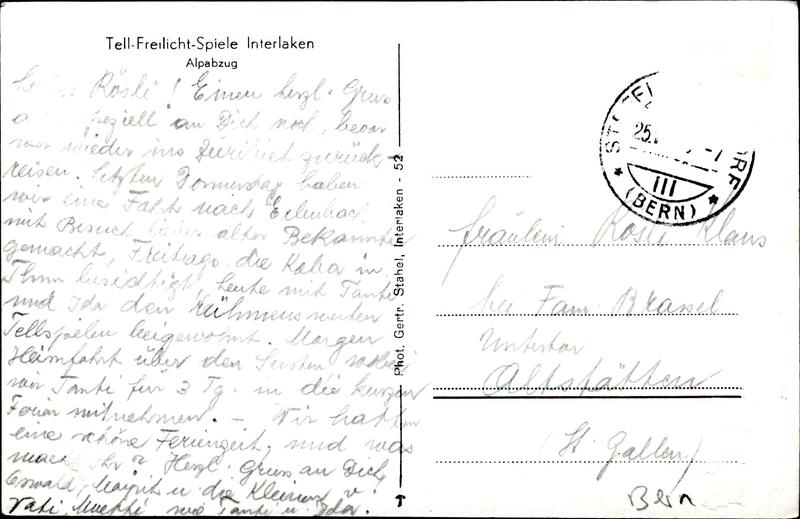 Tell-Freilicht-Spiele Interlaken
Alpabzug
Rösli! Einen herzl. Gruss
speziell an Dich noch, bevor
wir wieder ins Zürich zurück-
reisen. Letzten Donnerstag haben
wir eine Fahrt nach Erlenbach
mit Besuch lieber alter Bekannter
gemacht, Freitags die Kaba in
Thun besichtigt, heute mit Tanti
und Ida den rühmenswerten
Tellspielen beigewohnt. Morgen
Heimfahrt über den Susten wobei
wir Tanti für 3 Tg. in die kurzen
Ferien mitnehmen. – Wir hatten
eine schöne Ferienzeit, und was
Ihr? Herzl. Gruss an Dich,
Oswald, Margrit u die Kleinen v.
Vati, Muetti, wie Tanti u. Ida.
Phot. Gertr. Stahel, Interlaken - 52
25.
III
(BERN)
Fräulein Rösli Klaus
bei Fam. Brassel
Untertor
Altstätten
(St. Gallen)
Bern